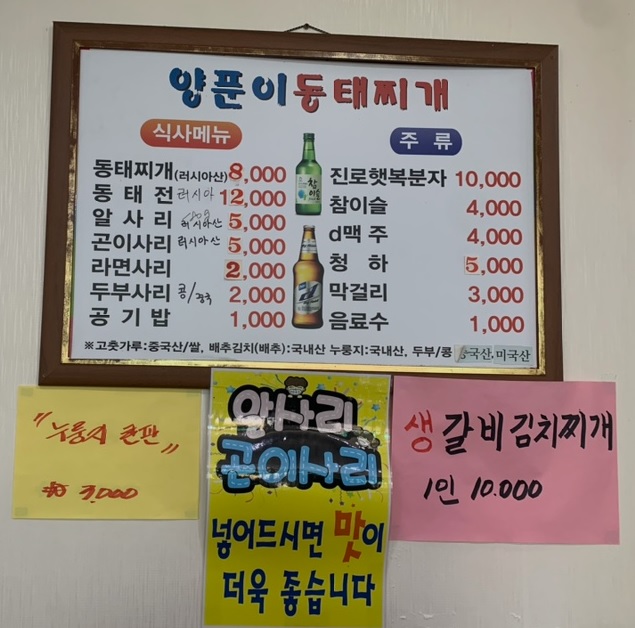 양푼이동태찌개
식사메뉴
동태찌개(러시아산) 8,000
동태전 러시아 12,000
알사리 러시아산 5,000
곤이사리 러시아산 5,000
라면사리 2,000
두부사리 콩/중국 2,000
공기밥 1,000
주류
진로햇복분자 10,000
참이슬 4,000
d맥주 4,000
청하 5,000
막걸리 3,000
음료수 1,000
※고춧가루:중국산/쌀, 배추김치(배추):국내산 누룽지:국내산, 두부/콩 중국산.미국산
"누룽지 한판"
3,000
알사리
곤이사리
넣어드시면 맛이
더욱 좋습니다
생갈비김치찌개
1인 10.000